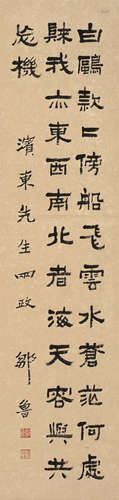 白鷗款〻傍船飛雲水蒼茫何處
歸我亦東西南北者海天容與共
忘機
濱東先生政
鄒魯